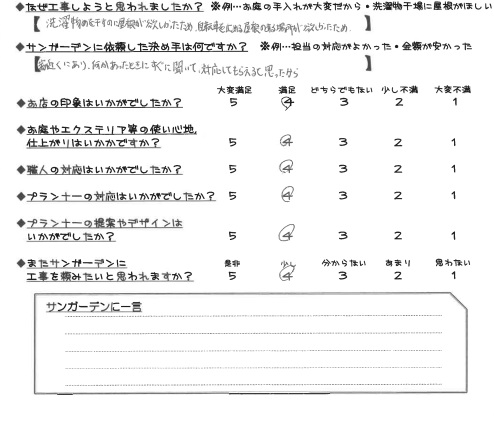 ◆なぜ工事しようと思われましたか? ※例…お庭の手入れが大変だから・洗濯物干場に屋根がほしい
【洗濯物を干すのに屋根が欲しかったため、自転車を置く屋根のある場所が欲しかったため】
◆サンガーデンに依頼した決め手は何ですか? ※例…担当の対応がよかった・金額が安かった
【 近くにあり、何かあったときにすぐに聞いて、対応してもらえると思ったから 】
大変満足 満足 どちらでもない 少し不満 大変不満
◆お店の印象はいかがでしたか? 5 4 3 2 1
◆お庭やエクステリア等の使い心地、
仕上がりはいかかですか? 5 4 3 2 1
◆職人の対応はいかがでしたか? 5 4 3 2 1
◆プランナーの対応はいかがでしたか? 5 4 3 2 1
◆プランナーの提案やデザインは
いかがでしたか? 5 4 3 2 1
◆またサンガーデンに 是非 少し 分からない あまり 思わない
工事を頼みたいと思われますか? 5 4 3 2 1
サンガーデンに一言